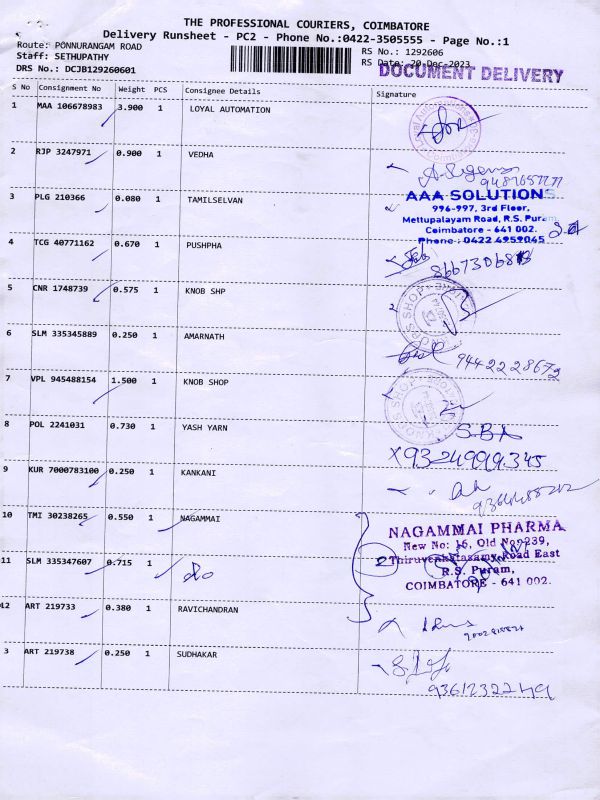 THE PROFESSIONAL COURIERS, COIMBATORE
Delivery Runsheet - PC2 - Phone No.:0422-3505555 - Page No.:1
Route: PONNURANGAM ROAD
Staff: SETHUPATHY
DRS No.: DCJB129260601
RS No.: 1292606
RS Date: 20-Dec-2023
DOCUMENT DELIVERY
S No Consignment No Weight PCS Consignee Details Signature
1 MAA 106678983 3.900 1 LOYAL AUTOMATION
2 RJP 3247971 0.900 1 VEDHA
3 PLG 210366 0.080 1 TAMILSELVAN
AAA SOLUTIONS
996-997, 3rd Floor,
Mettupalayam Road, R.S. Puram
Coimbatore - 641 002.
Phone : 0422 4959045
4 TCG 40771162 0.670 1 PUSHPHA
5 CNR 1748739 0.575 1 KNOB SHP
6 SLM 335345889 0.250 1 AMARNATH
9442228672
7 VPL 945488154 1.500 1 KNOB SHOP
8 POL 2241031 0.730 1 YASH YARN
S.BA
X9324999345
9 KUR 7000783100 0.250 1 KANKANI
10 TMI 30238265 0.550 1 NAGAMMAI
NAGAMMAI PHARMA
New No: 16, Old No. 239,
Thiruvenkatasamy Road East
R.S. Puram,
COIMBATORE - 641 002.
11 SLM 335347607 0.715 1 do
12 ART 219733 0.380 1 RAVICHANDRAN
3 ART 219738 0.250 1 SUDHAKAR